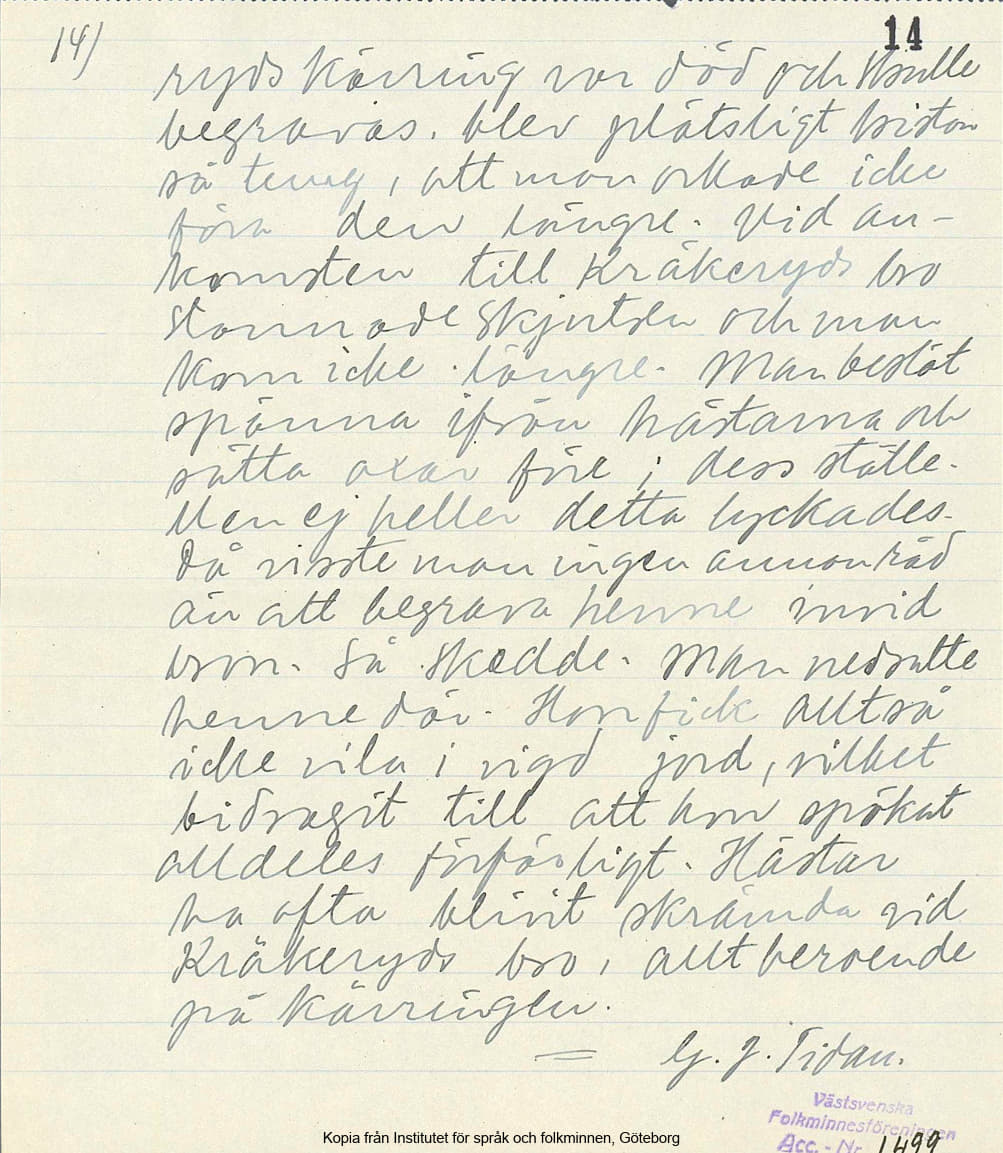 14)
14
ryds kärring var död och skulle
begravas. blev plötsligt kistan
så tung, att man orkade icke
föra den längre. Vid an-
komsten till Kråkeryds bro
stannade skjutsen och man
kom icke längre. Man beslöt
spänna ifrån hästarna och
sätta oxar före i dess ställe.
Men ej heller detta lyckades.
Då visste man ingen annan råd
än att begrava henne invid
bron. Så skedde. Man nedsatte
henne där. Hon fick alltså
icke vila i vigd jord, vilket
bidragit till att hon spökat
alldeles förfärligt. Hästar
ha ofta blivit skrämda vid
Kråkeryds bro, allt beroende
på kärringen.
G. J. Tidan.
Västsvenska
Folkminnesföreningen
Acc. - Nr. 1499
Kopia från Institutet för språk och folkminnen, Göteborg